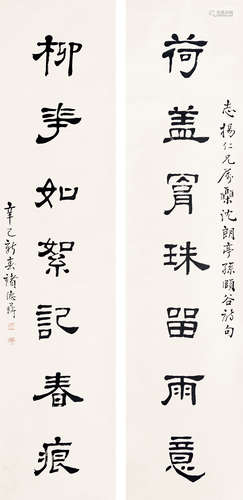 志揚仁兄屬 沈朗亭孫頤谷詩句
荷盖 珠留雨意
柳 如絮記春痕
辛巳新春褚德彝